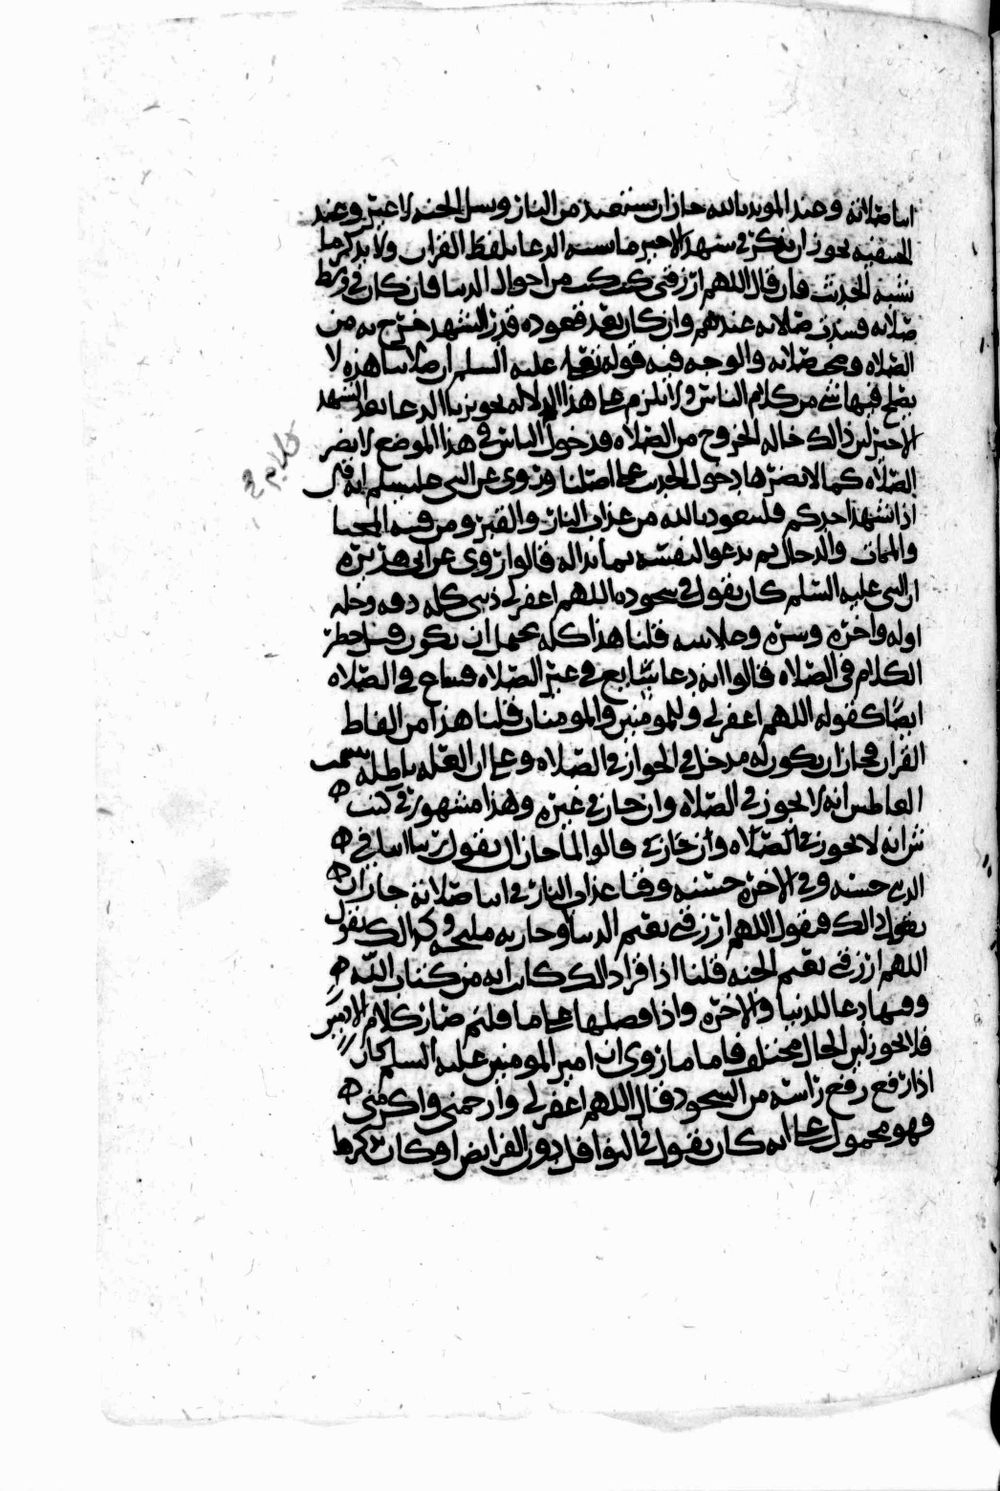 اثنا صلاته وعند المويد بالله جاز ان يستعيذ من النار ويسل الجنه لا غير وعند
الحنفيه يجوز ان يذكر في تشهد الاخير ما يشبه الدعا بلفظ القران ولا يذكر ما
يشبه الحديث فان قال اللهم ارزقني كيت كيت من احوال الدنيا فان كان في وسط
صلاته فسدت صلاته عندهم وان كان بعد قعوده قدر التشهد خرج به من
الصلاه وصحت صلاته والوجه فيه قوله عليه السلم ان صلاتنا هذه لا
يصلح فيها شي من كلام الناس ولا يلزم على هذا الدلاله تجويزنا الدعا بعد التشهد
الاخير لان ذالك حاله الخروج من الصلاه ودخول الناس في هذا الموضع لا يضر
الصلاه كما لا يضرها دخول الحدث على اصلنا وروي عن النبي صلى عليه وسلم انه قال
اذا تشهد احدكم فليتعوذ بالله من عذاب النار والقبر ومن فتنه المحيا
والممات والدجال ثم يدعو لنفسه بما بدا له قالوا روي عن ابي هريره
ان النبي عليه السلم كان يقول في سجوده اللهم اغفر لي ذنبي كله دقه وجله
اوله واخره وسره وعلانيته قلنا هذا كله يحمل ان يكون قبل حظر
الكلام في الصلاه قالوا انه دعا شايع في غير الصلاه فساح في الصلاه
ايضا كقوله اللهم اغفر لي وللمومنين والمومنات قلنا هذا من الفاظ
القران فجاز ان يكون له مدخل في الجواز في الصلاه وعلى ان العله باطله بتشميت
العاطس انه لا يجوز في الصلاه وان جاز في غيره وهذا مشهور في كتب
ش انه لا يجوز في الصلاه وان جاز في قالوا لما جاز ان يقول ربنا اتنا في
الدنيا حسنه وفي الاخره حسنه وقنا عذاب النار في اثنا صلاته جاز ان
يقول ذالك فيقول اللهم ارزقني نعيم الدنيا وجاريه مليحه وكذالك يقول
اللهم ارزقني نعيم الجنه قلنا اذا قرا ذالك كانت ايه من كتاب الله
وفيها دعا للدنيا والاخره واذا فصلها على ما قلتم صار كلام الادميين
فلا يجوز لان الحال مختلف فاما ما روي ان امير المومنين عليه السلم كان
اذا رفع رفع راسه من السجود قال اللهم اغفر لي وارحمني واكرمني
فهو محمول على انه كان يقول في النوافل دون الفرايض او كان